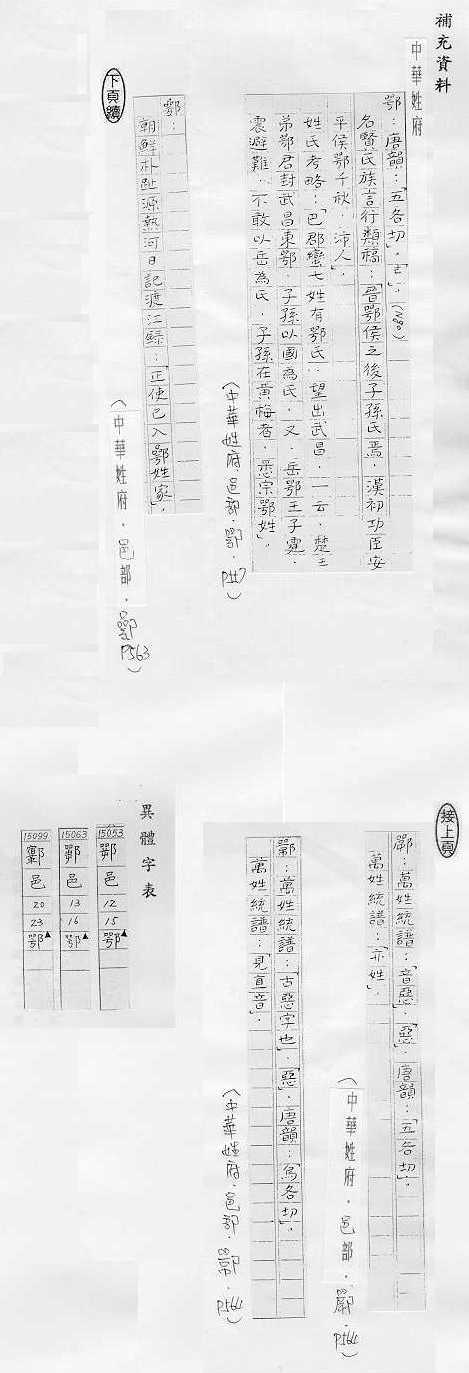 補充資料
中華姓府
鄂：唐韻：「五各切」。
名賢氏族言行類稿：「晉鄂侯之後子孫氏焉．漢初功臣安
平侯鄂千秋．沛人」．
姓氏考略：「巴郡蠻七姓有鄂氏：望出武昌．一云．楚王
弟鄂君封武昌東鄂．子孫以國為氏．又．岳鄂王子霖．
震避難．不敢以岳為氏．子孫在黃梅者．悉宗鄂姓」。
（中華姓府．邑部．鄂．
朝鮮朴趾源熱河日記渡江錄：「正使已入鄂姓家」．
（中華姓府．邑部．
P563）
下頁續
接上頁
萬姓統譜：「音惡」．「惡」．唐韻：「五各切」。
萬姓統譜：「亦姓」．
（中華姓府．邑部．
P.564）
萬姓統譜：「古惡字也」．「惡」．唐韻：「烏各切」．
萬姓統譜：「見直音」．
（中華姓府．邑部．
P.564）
異體字表
15053
邑
12
15
鄂▲
15063
邑
13
16
鄂▲
15099
邑
20
23
鄂▲